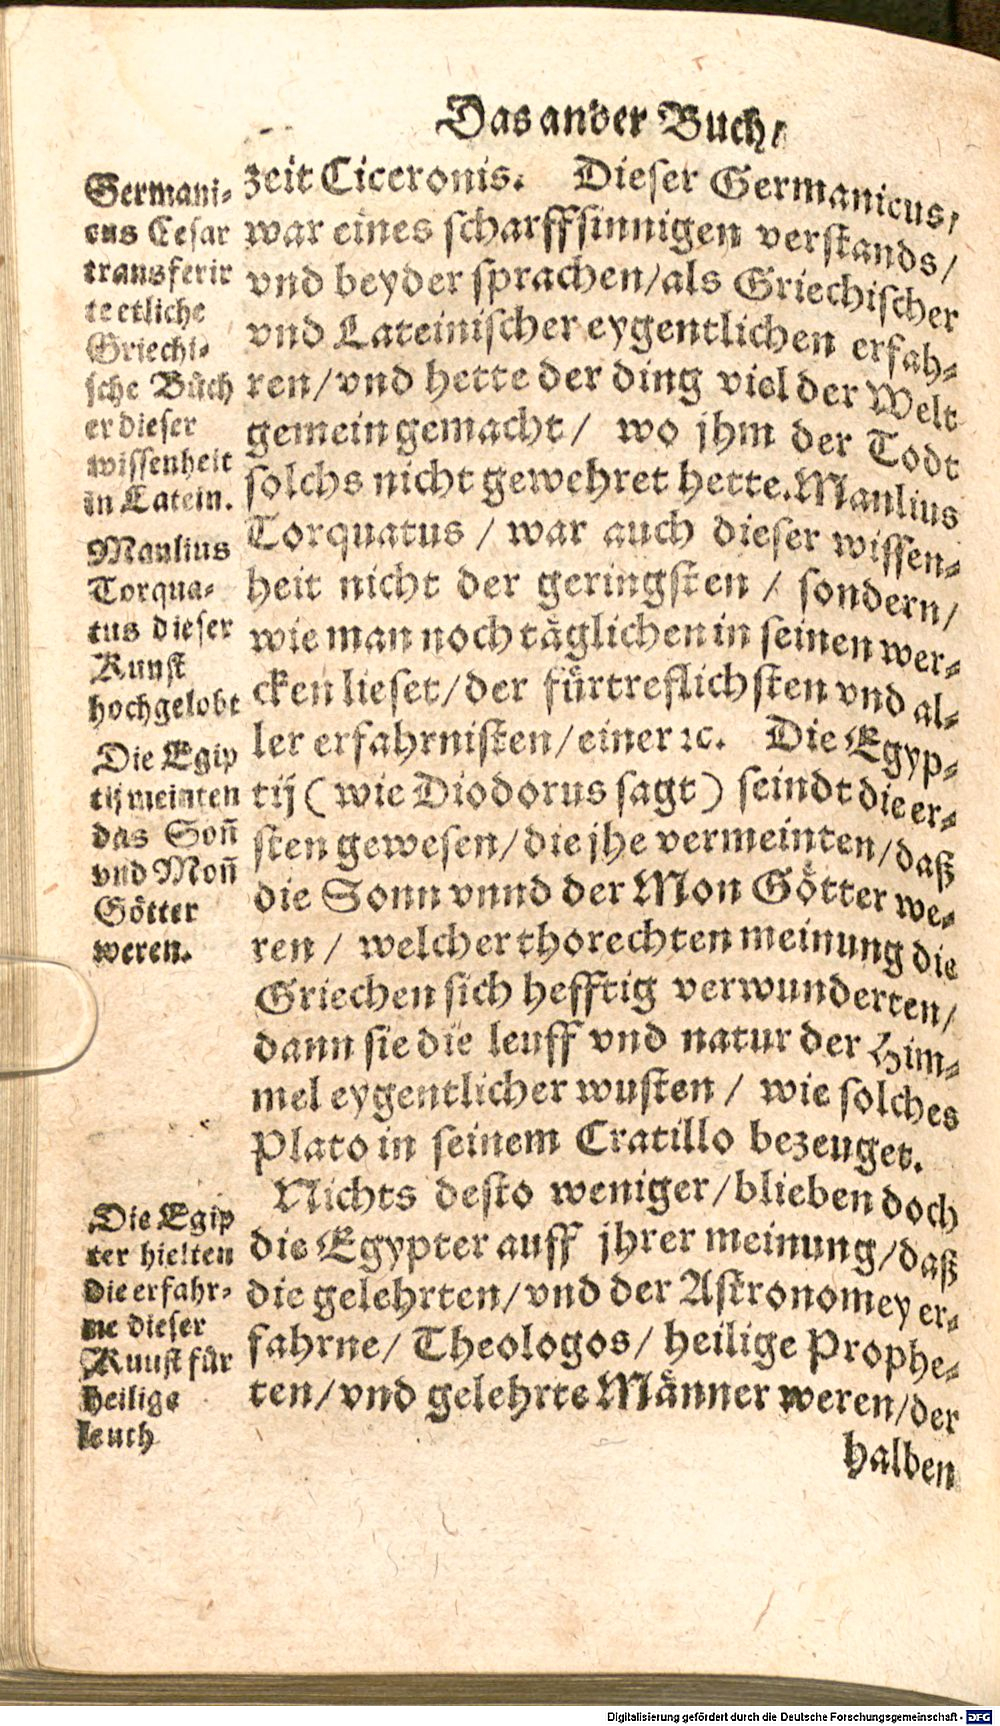 Das ander Buch/
Germani-
cus Cesar
transferir
te etliche
Griechi-
sche Büch
er dieser
wissenheit
in Latein.
Manlius
Torqua-
tus dieser
Kunst
hochgelobt
Die Egip
tij meinten
das Soñ
vnd Moñ
Götter
weren.
Die Egip
ter hielten
die erfahr-
ne dieser
Kunst für
heilige
leuth
zeit Ciceronis. Dieser Germanicus/
war eines scharffsinnigen verstands/
vnd beyder sprachen/als Griechischer
vnd Lateinischer eygentlichen erfah-
ren/vnd hette der ding viel der Welt
gemein gemacht/ wo jhm der Todt
solchs nicht gewehret hette. Manlius
Torquatus / war auch dieser wissen-
heit nicht der geringsten / sondern/
wie man noch täglichen in seinen wer-
cken lieset/der fürtreflichsten vnd al-
ler erfahrnisten/einer ꝛc. Die Egyp-
tij ( wie Diodorus sagt ) seindt die er-
sten gewesen/die jhe vermeinten/daß
die Sonn vnnd der Mon Götter we-
ren / welcher thorechten meinung die
Griechen sich hefftig verwunderten/
dann sie die leuff vnd natur der Him-
mel eygentlicher wusten / wie solches
Plato in seinem Cratillo bezeuget.
Nichts desto weniger/blieben doch
die Egypter auff jhrer meinung/daß
die gelehrten/vnd der Astronomey er-
fahrne/ Theologos/ heilige Prophe-
ten/vnd gelehrte Männer weren/der
halben
Digitalisierung gefördert durch die Deutsche Forschungsgemeinschaft - DFG